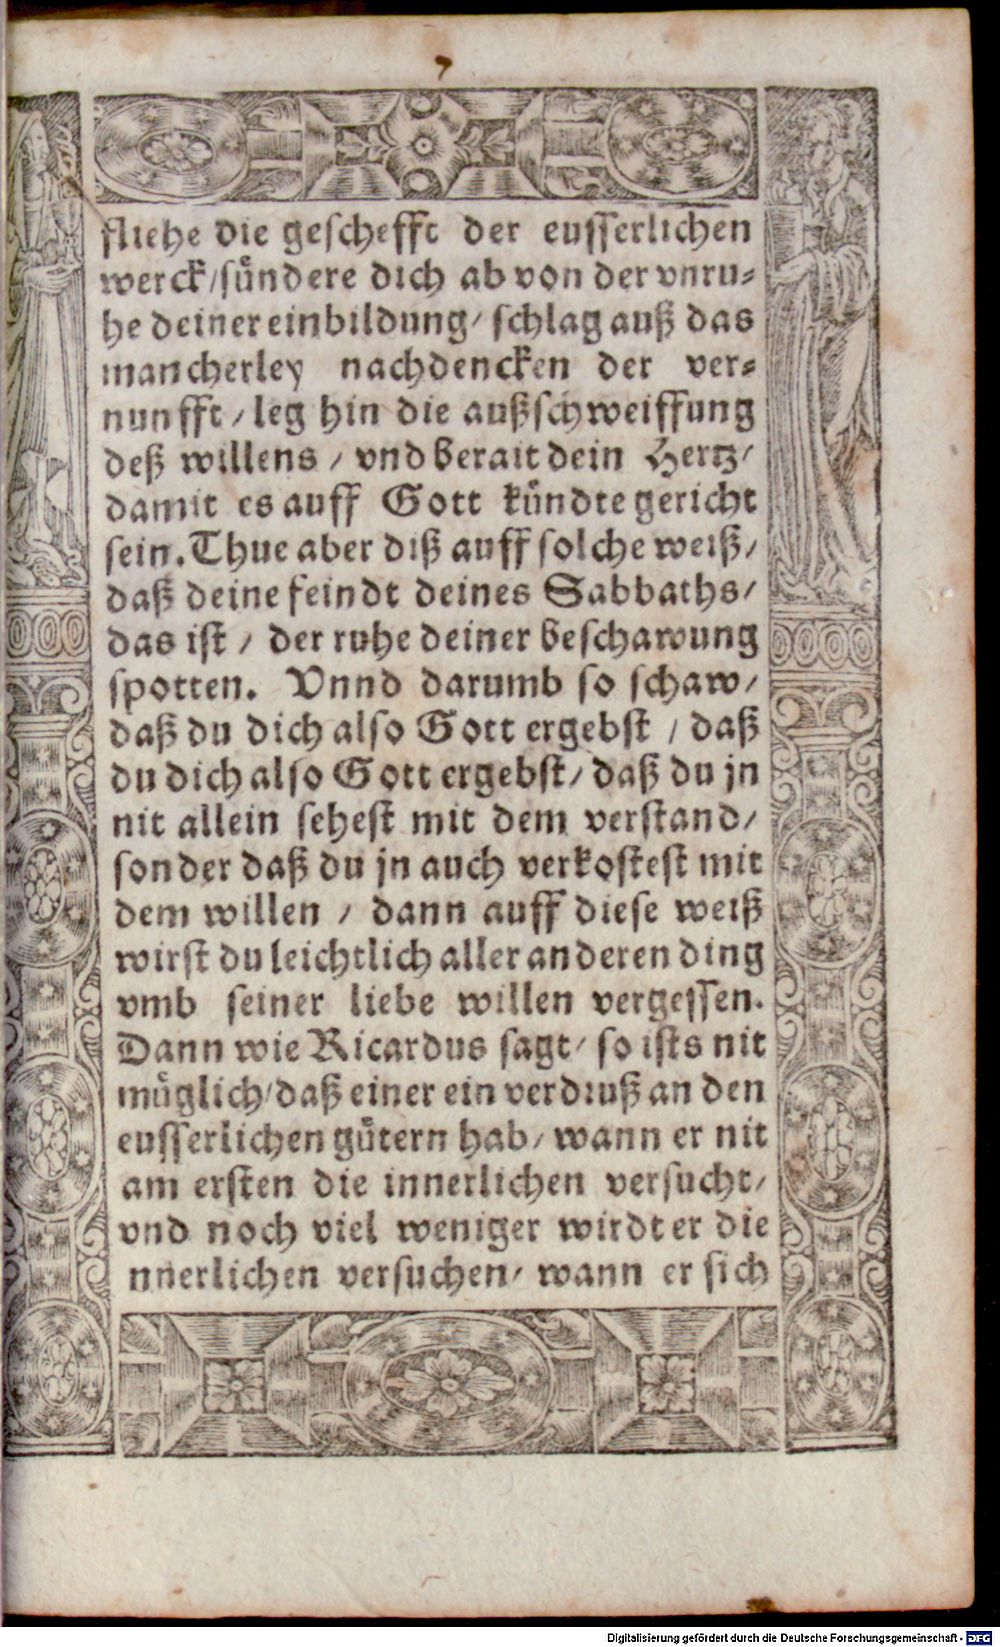 7
fliehe die geschefft der eusserlichen
werck/sündere dich ab von der vnru⸗
he deiner einbildung/ schlag auß das
mancherley nachdencken der ver⸗
nunfft/ leg hin die außschweiffung
deß willens / vnd berait dein Hertz/
damit es auff Gott kündte gericht
sein. Thue aber diß auff solche weiß/
daß deine feindt deines Sabbaths/
das ist / der ruhe deiner beschawung
spotten. Vnnd darumb so schaw/
daß du dich also Gott ergebst / daß
du dich also Gott ergebst/ daß du jn
nit allein sehest mit dem verstand/
sonder daß du jn auch verkostest mit
dem willen / dann auff diese weiß
wirst du leichtlich aller anderen ding
vmb seiner liebe willen vergessen.
Dann wie Ricardus sagt/ so ists nit
müglich/daß einer ein verdruß an den
eusserlichen gütern hab/ wann er nit
am ersten die innerlichen versucht/
vnd noch viel weniger wirdt er die
nnerlichen versuchen/ wann er sich
Digitalisierung gefördert durch die Deutsche Forschungsgemeinschaft - DFG